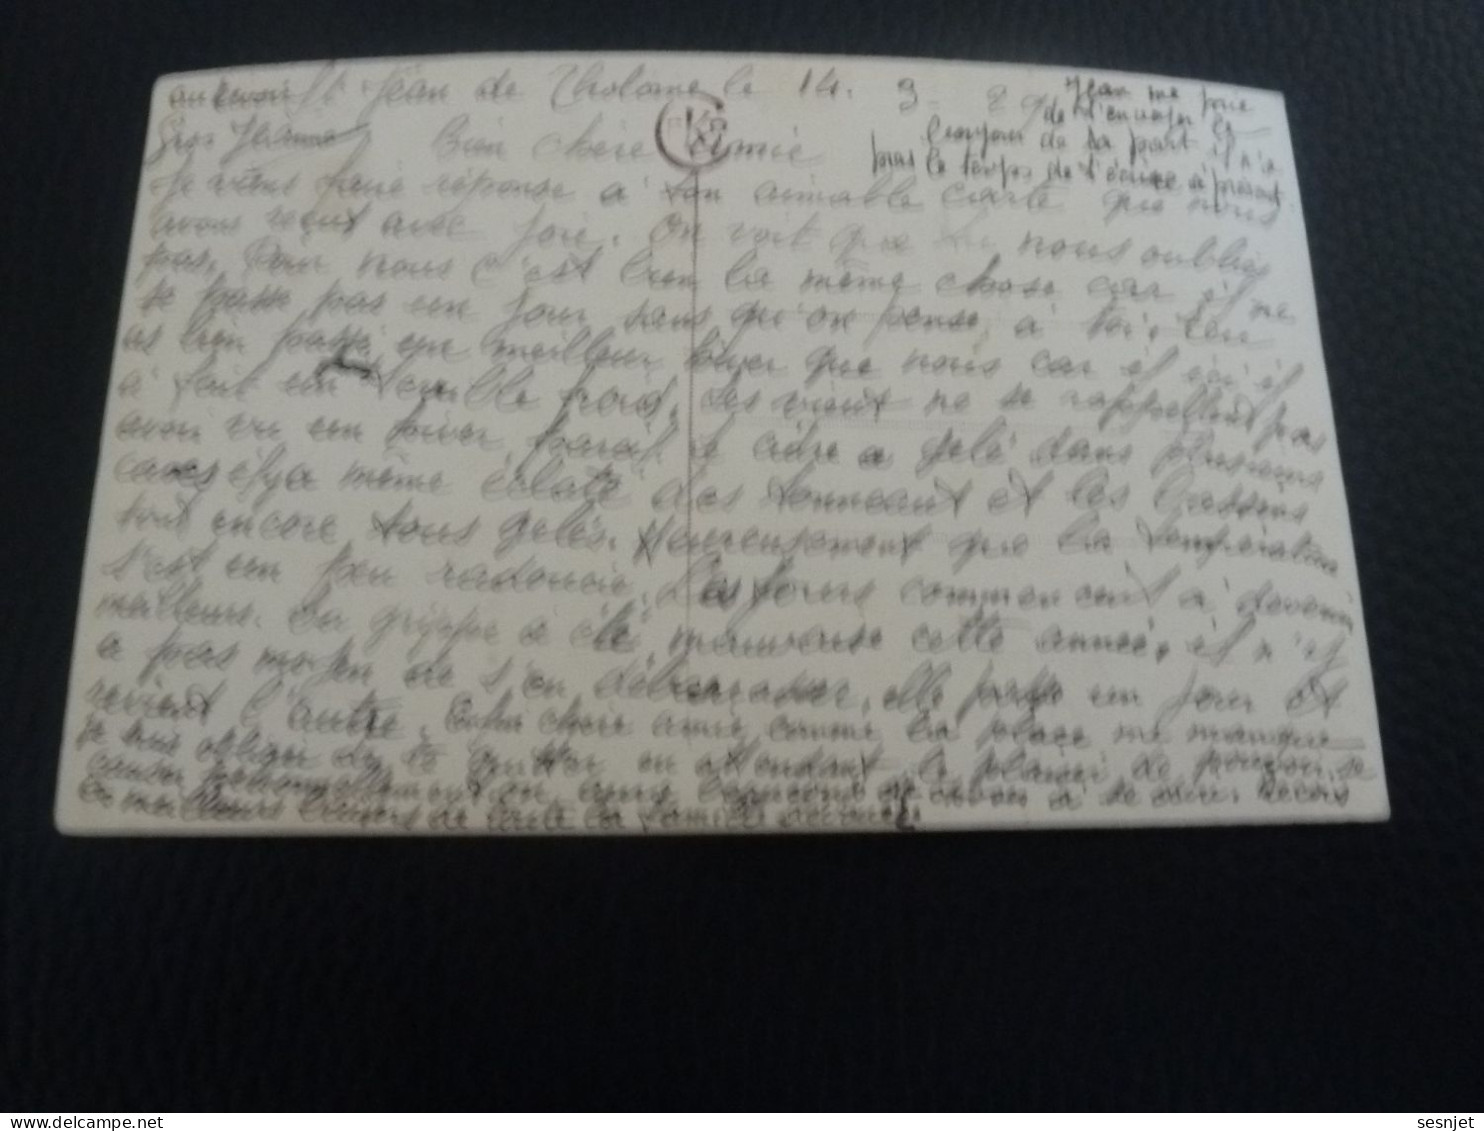 au revoir St Jean de Tholome le 14. 3 - 29
Jean me prie
de t'envoyer le
bonjour de sa part il n'a
pas le temps de t'écrire à présent
Gros Jeanne
Bien chère amie
Je viens faire réponse à ton aimable carte que nous
avons reçut avec joie. On voit que tu nous oublies
pas. Pour nous c'est bien la même chose car il ne
se passe pas un jour sans qu'on pense à toi. tu
as bien passé un meilleur hiver que nous car ici il
à fait un terrible froid. Les vieux ne se rappellent pas
avoir vu un hiver pareil le cidre a gelé dans plusieurs
caves il y a même éclaté des tonneaux et les bassins
sont encore tous gelés. Heureusement que la température
s'est un peu radoucie. Les jours commencent à devenir
meilleurs. La grippe a été mauvaise cette année, il n'y
a pas moyen de s'en débarrasser, elle passe un jour et
revient l'autre. Enfin chère amie comme la place me manque
je suis obliger de te quitter en attendant le plaisir de pouvoir se
causer personnellement on aura beaucoup de choses à se dire. Reçois
les meilleurs baisers de toute la famille
sesnjet